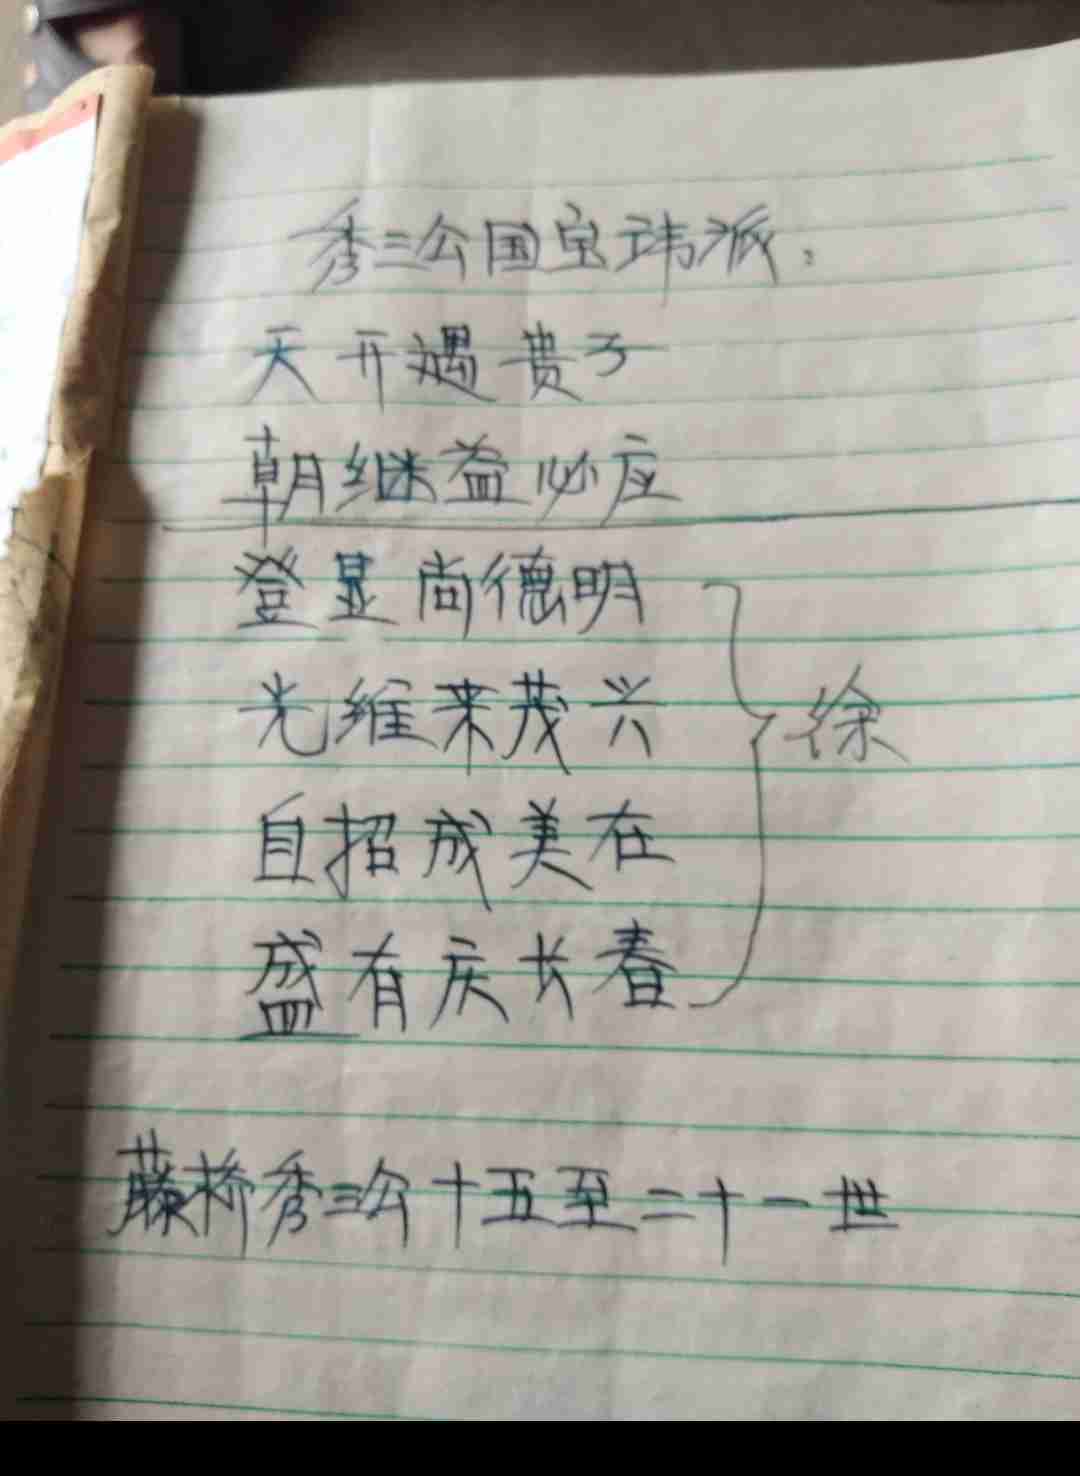 秀三公国宝讳派：
天开遇贵子
朝继益必应
登显尚德明
光维来茂兴
徐
自招成美在
盛有庆长春
藤桥秀三公十五至二十一世